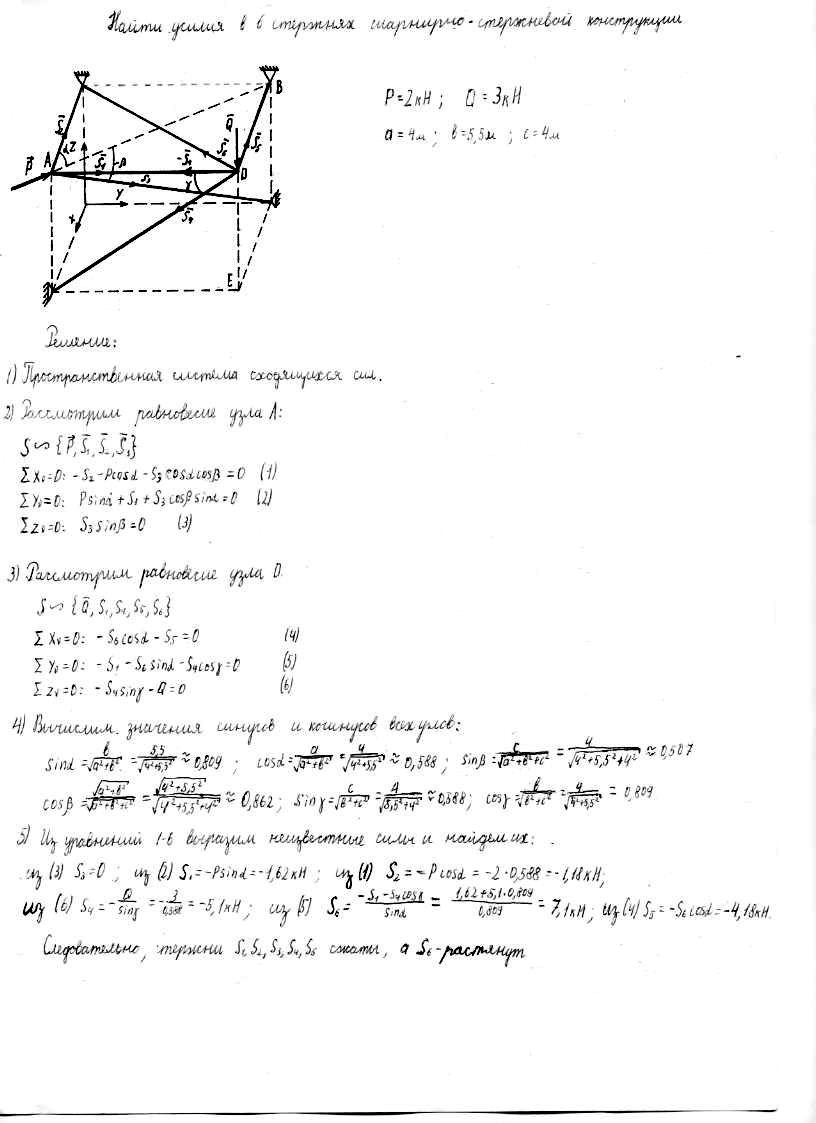 Найти усилия в 6 стержнях шарнирно-стержневой конструкции
P=2кН; Q=3кН
a=4м; b=5,5м; c=4м
B
Q̄
S̄₂
α
Z
S̄₆
S̄₅
P̄
A
S̄₁
β
-S̄₁
D
S₃
γ
Y
S̄₄
X
E
Решение:
1) Пространственная система сходящихся сил.
2) Рассмотрим равновесие узла A:
S∾{P̄,S̄₁,S̄₂,S̄₃}
ΣXᵥ=0: -S₂-Pcosα-S₃cosαcosβ=0 (1)
ΣYᵥ=0: Psinα+S₁+S₃cosβsinα=0 (2)
ΣZᵥ=0: S₃sinβ=0 (3)
3) Рассмотрим равновесие узла D.
S∾{Q̄,S₁,S₄,S₅,S₆}
ΣXᵥ=0: -S₆cosα-S₅=0 (4)
ΣYᵥ=0: -S₁-S₆sinα-S₄cosγ=0 (5)
ΣZᵥ=0: -S₄sinγ-Q=0 (6)
4) Вычислим значения синусов и косинусов всех углов:
sinα=b/√(a²+b²)=5,5/√(4²+5,5²)≈0,809; cosα=a/√(a²+b²)=4/√(4²+5,5²)≈0,588; sinβ=c/√(a²+b²+c²)=4/√(4²+5,5²+4²)≈0,507
cosβ=√(a²+b²)/√(a²+b²+c²)=√(4²+5,5²)/√(4²+5,5²+4²)≈0,862; sinγ=c/√(b²+c²)=4/√(5,5²+4²)≈0,588; cosγ=b/√(b²+c²)=4/√(4²+5,5²)=0,809
5) Из уравнений 1-6 выразим неизвестные силы и найдем их:
из (3) S₃=0; из (2) S₁=-Psinα=-1,62кН; из (1) S₂=-Pcosα=-2·0,588=-1,18кН;
из (6) S₄=-Q/sinγ=-3/0,588=-5,1кН; из (5) S₆=(-S₁-S₄cosγ)/sinα=(1,62+5,1·0,809)/0,809=7,1кН; из (4) S₅=-S₆cosα=-4,18кН.
Следовательно, стержни S₁ S₂, S₃, S₄, S₅ сжаты, а S₆-растянут